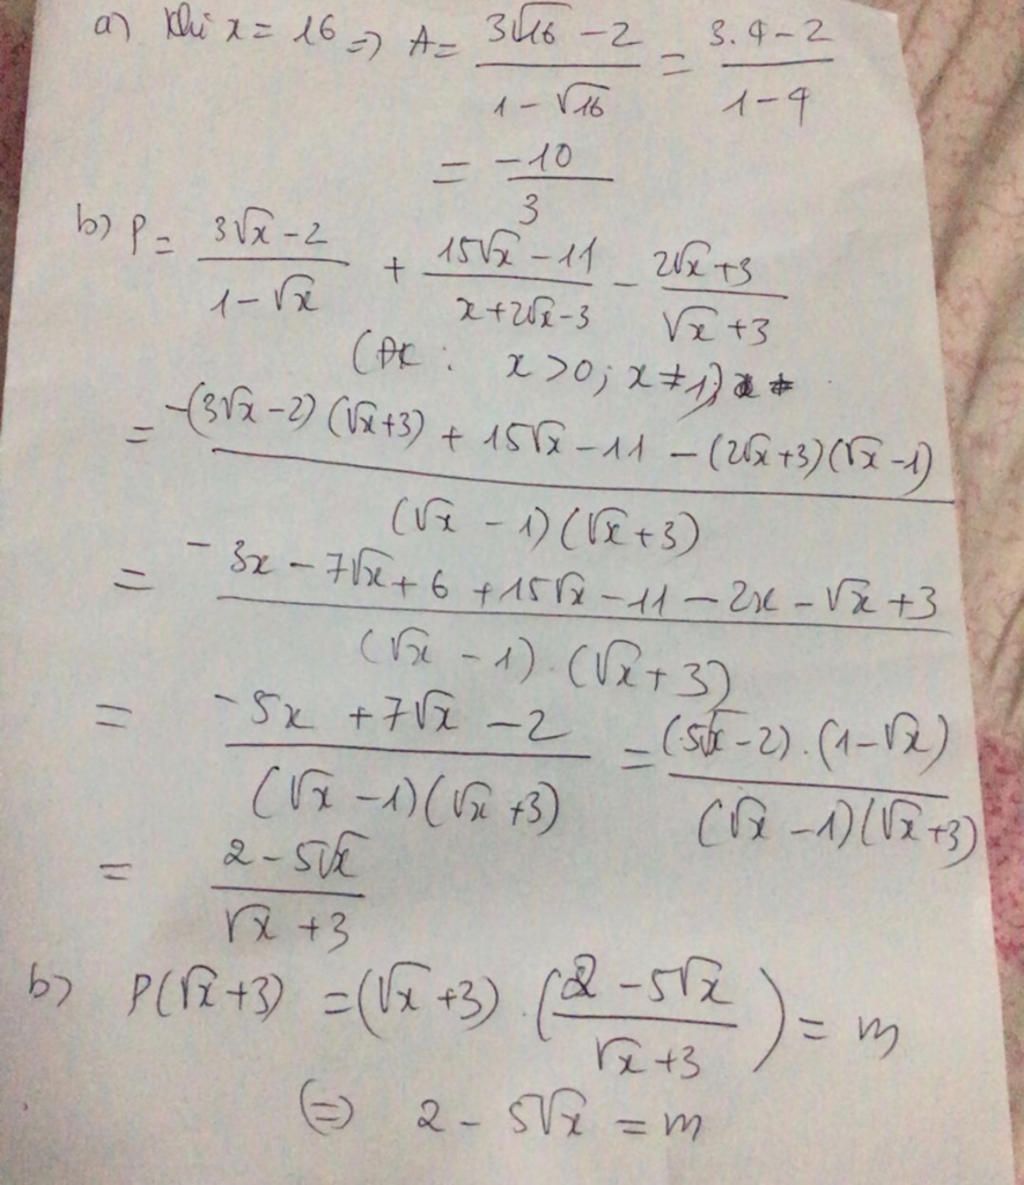 a) Khi x = 16 => A = (3√16 - 2)/(1 - √16) = (3.4 - 2)/(1 - 4)
= -10/3
b) P = (3√x - 2)/(1 - √x) + (15√x - 11)/(x + 2√x - 3) - (2√x + 3)/(√x + 3)
(ĐK : x > 0 ; x ≠ 1)
= (-(3√x - 2)(√x + 3) + 15√x - 11 - (2√x + 3)(√x - 1))/((√x - 1)(√x + 3))
= (-3x - 7√x + 6 + 15√x - 11 - 2x - √x + 3)/((√x - 1).(√x + 3))
= (-5x + 7√x - 2)/((√x - 1)(√x + 3)) = ((5√x - 2).(1 - √x))/((√x - 1)(√x + 3))
= (2 - 5√x)/(√x + 3)
b) P(√x + 3) = (√x + 3).((2 - 5√x)/(√x + 3)) = m
(=) 2 - 5√x = m